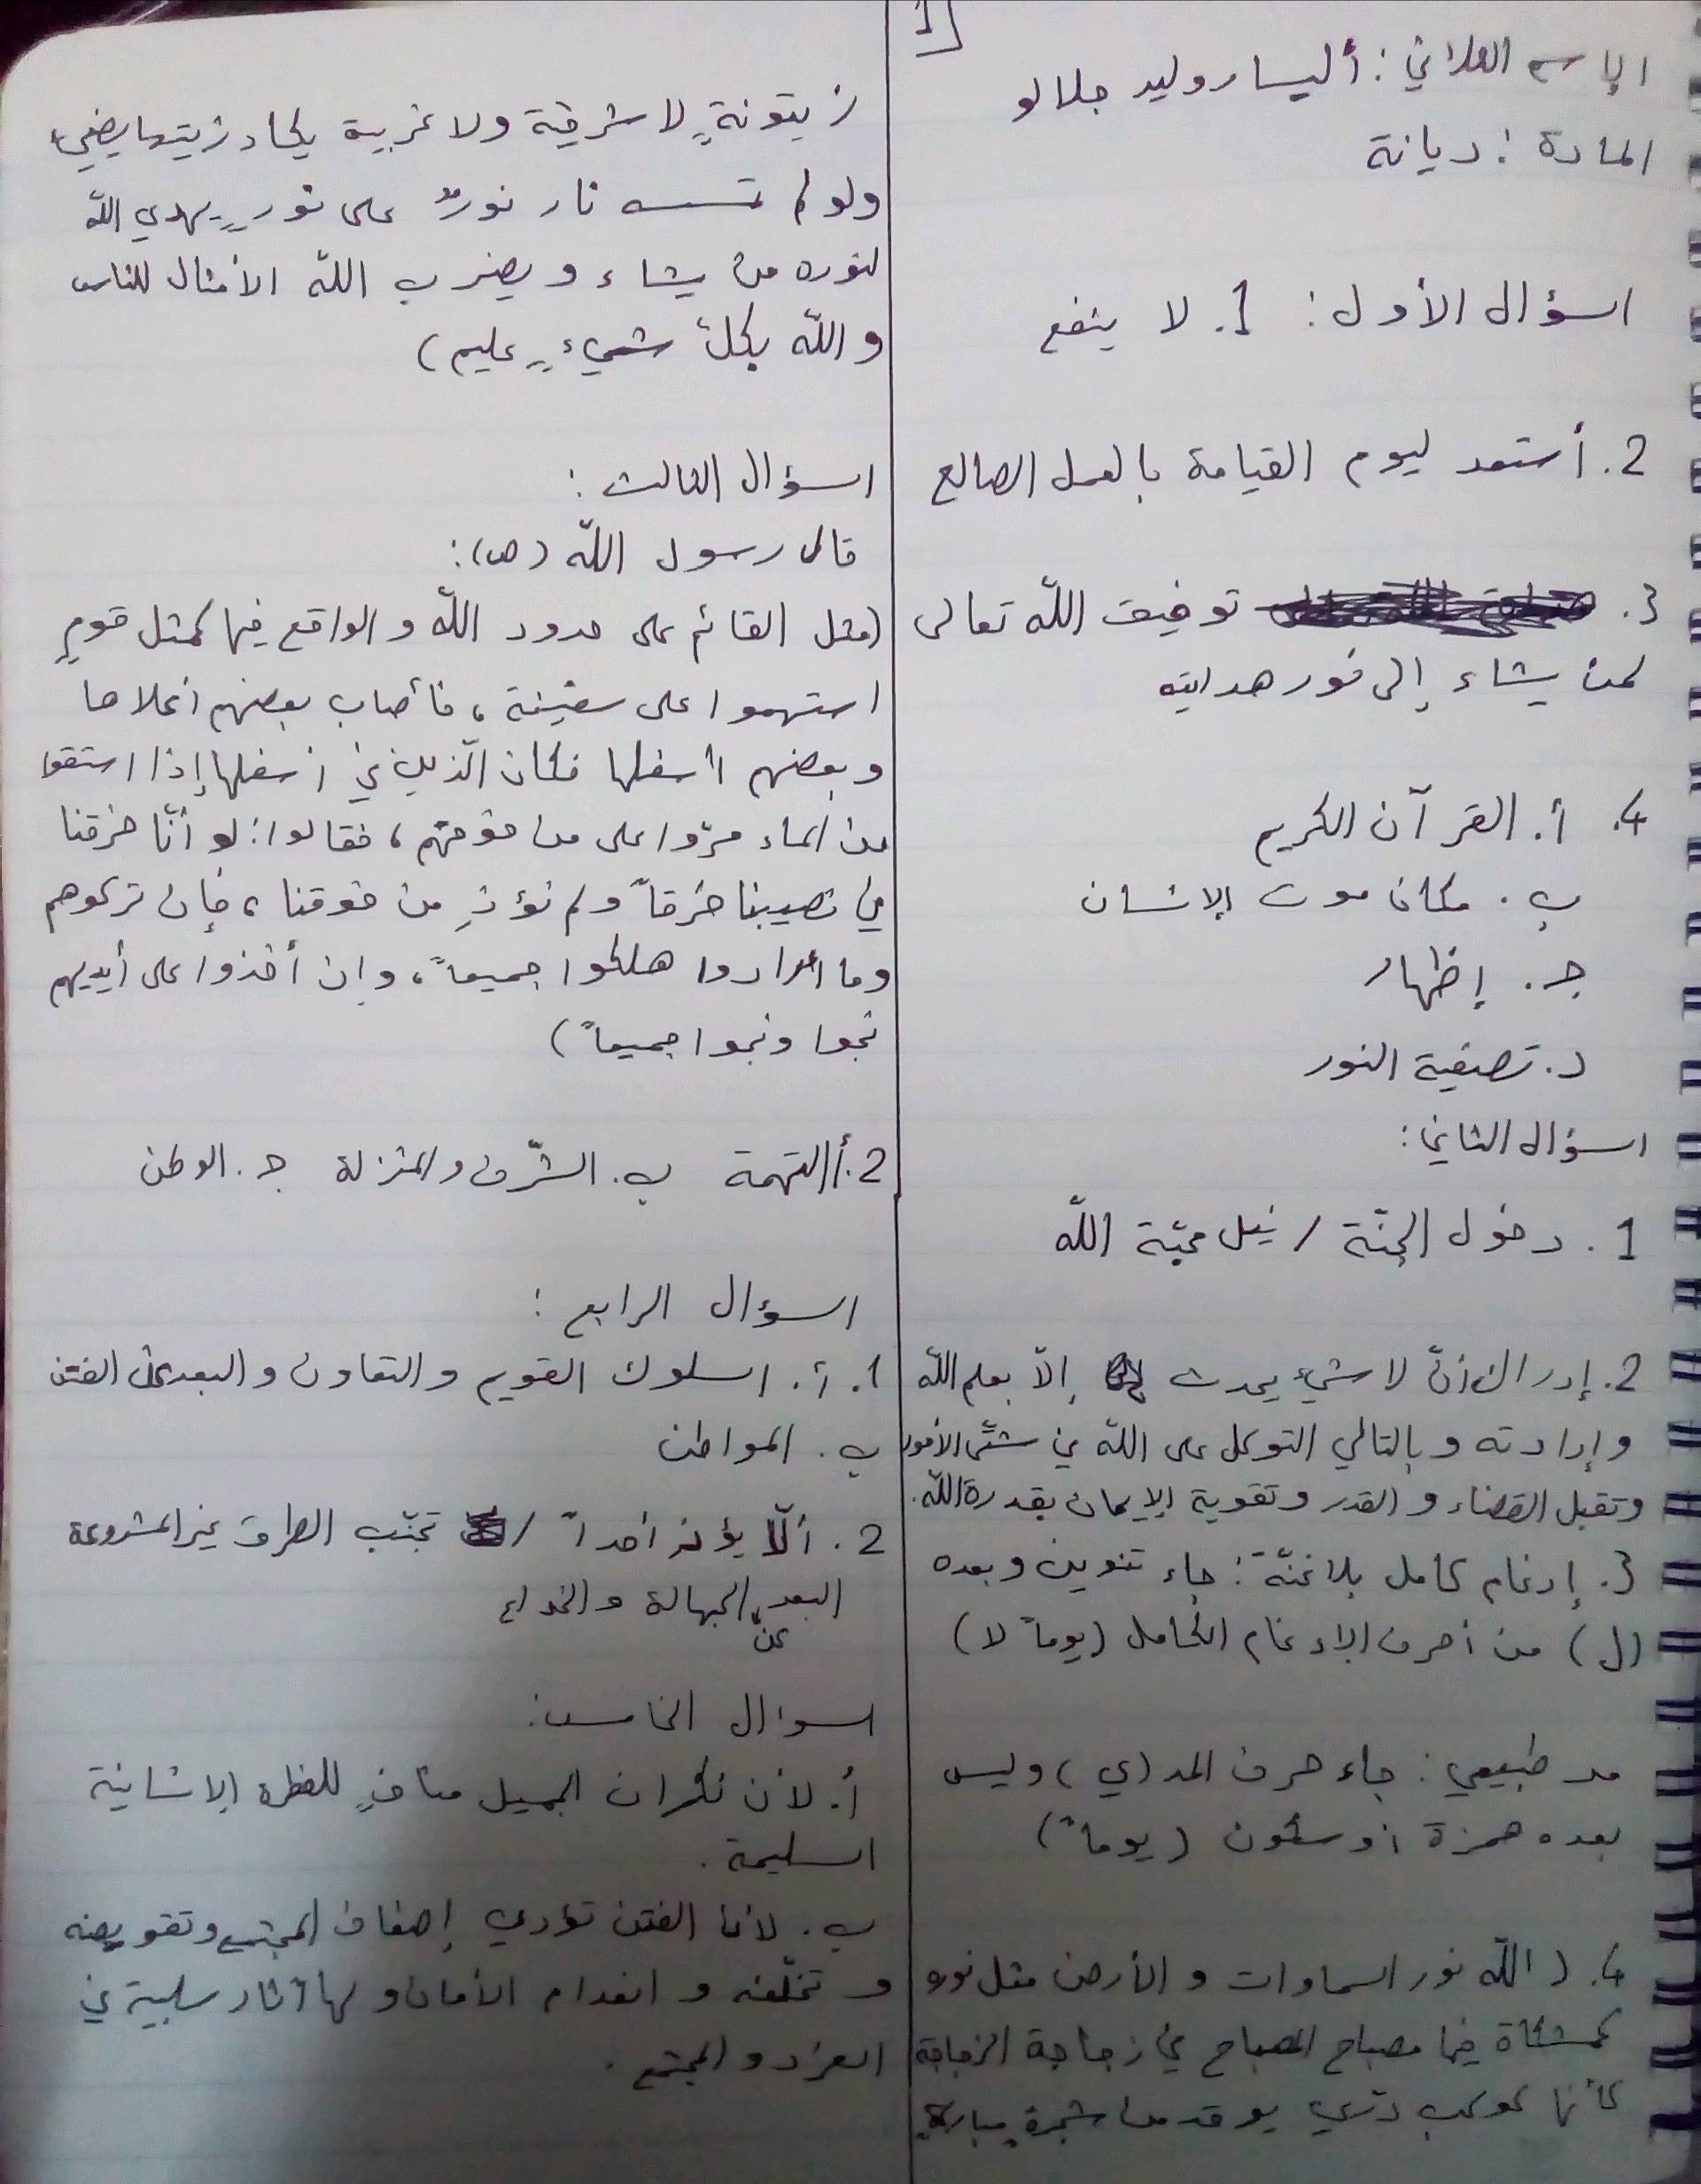 1
الاسم الثلاثي: أليسار وليد جلالو
المادة: ديانة
السؤال الأول: 1. لا ينفع
2. أستعد ليوم القيامة بالعمل الصالح
3. توفيق الله تعالى
لمن يشاء إلى نور هدايته
4. أ. القرآن الكريم
ب. مكان موت الإنسان
ج. إظهار
د. تصفية النور
السؤال الثاني:
1. دخول الجنّة / نيل محبّة الله
2. إدراك أنّ لا شيء يحدث إلّا بعلم الله
وإرادته وبالتالي التوكل على الله في شتّى الأمور
وتقبل القضاء والقدر وتقوية الإيمان بقدرة الله.
3. إدغام كامل بلا غنّة: جاء تنوين وبعده
(ل) من أحرف الإدغام الكامل (يوماً لا)
مد طبيعي: جاء حرف المد (ي) وليس
بعده همزة أو سكون (يوماً)
4. (الله نور السماوات والأرض مثل نوره
كمشكاة فيها مصباح المصباح في زجاجة الزجاجة
كأنها كوكب درّي يوقد من شجرة مباركة
زيتونةٍ لا شرقية ولا غربية يكاد زيتها يضيء
ولو لم تمسسه نار نورٌ على نورٍ يهدي الله
لنوره من يشاء ويضرب الله الأمثال للناس
والله بكلّ شيءٍ عليم)
السؤال الثالث:
قال رسول الله (ص):
(مثل القائم على حدود الله والواقع فيها كمثل قومٍ
استهموا على سفينة، فأصاب بعضهم أعلاها
وبعضهم أسفلها فكان الّذين في أسفلها إذا استقوا
من الماء مرّوا على من فوقهم، فقالوا: لو أنّا خرقنا
في نصيبنا خرقاً ولم نؤذِ من فوقنا، فإن تركوهم
وما أرادوا هلكوا جميعاً، وإن أخذوا على أيديهم
نجوا ونجوا جميعاً)
2. أ. التهمة ب. الشّرف والمنزلة ج. الوطن
السؤال الرابع:
1. أ. السلوك القويم والتعاون والبعد عن الفتن
ب. المواطن
2. ألّا يؤذ أحداً / تجنّب الطرق غير المشروعة
البعد عن الجهالة والخداع
السوال الخامس:
أ. لأن نكران الجميل منافٍ للفطرة الإنسانية
السليمة.
ب. لأن الفتن تؤدي إضعاف المجتمع وتقويضه
وتخلّفه وانعدام الأمان ولها آثار سلبية في
الفرد والمجتمع.